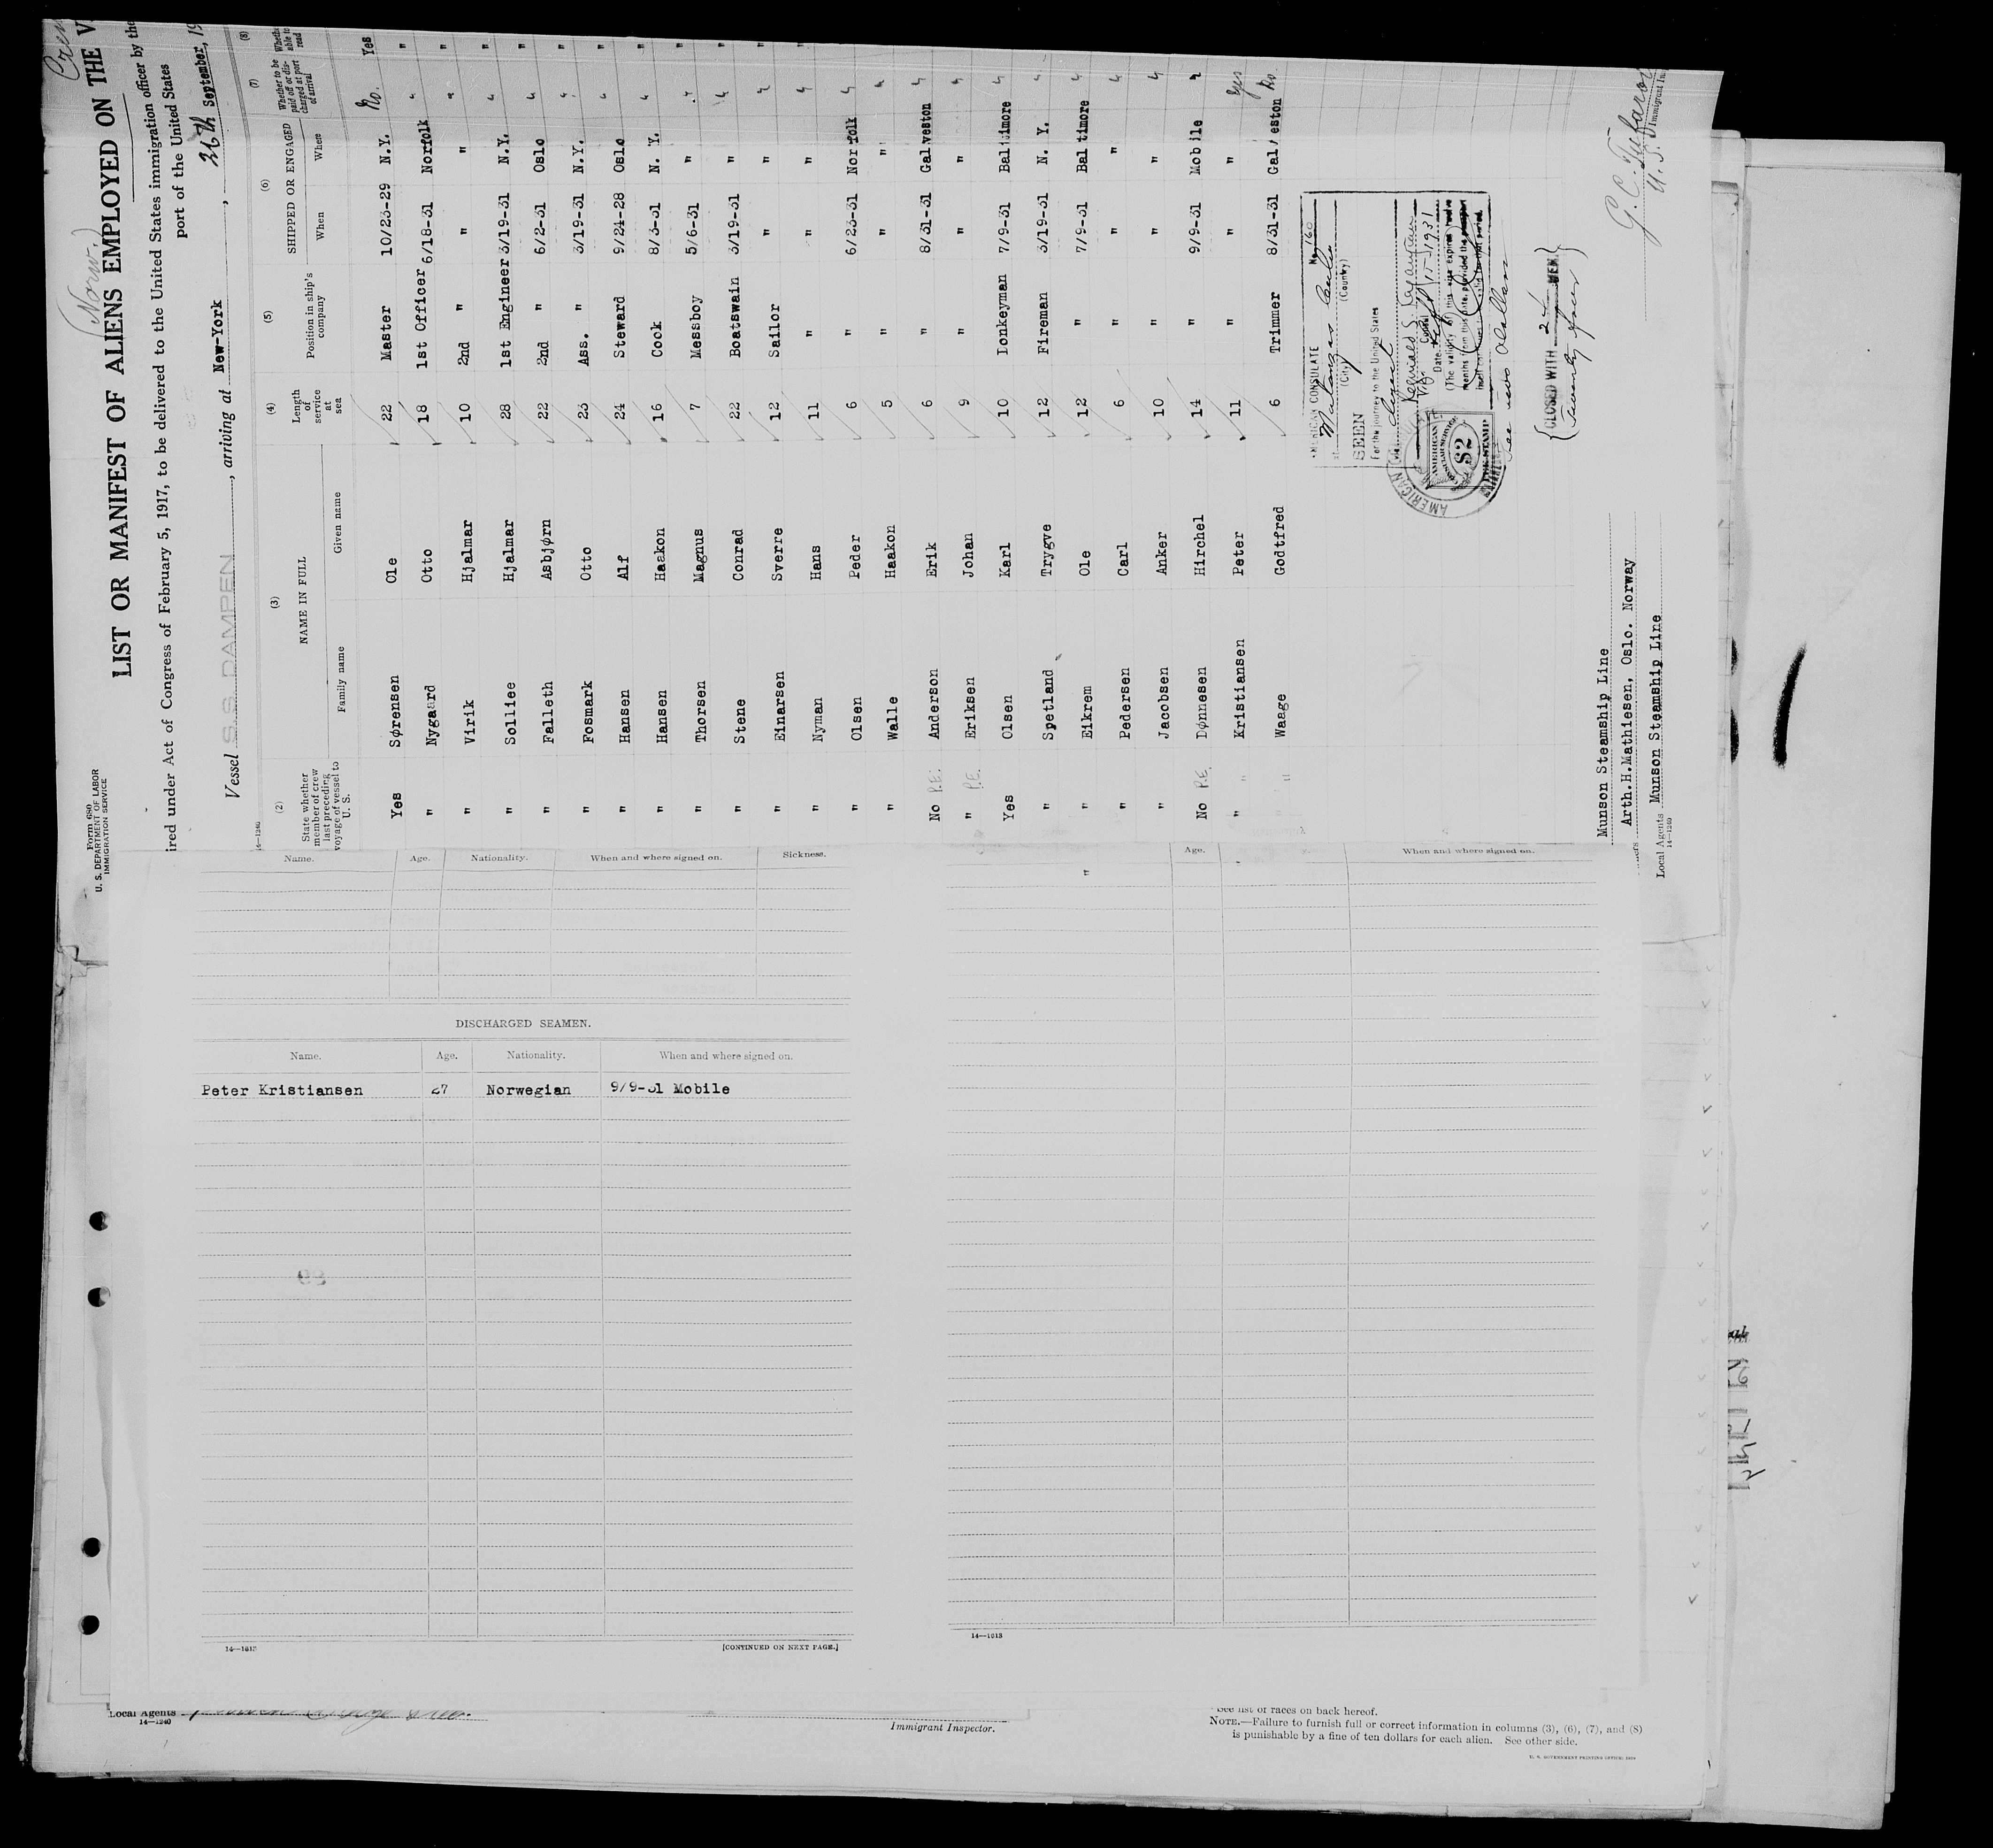 Crew
(Norw.)
LIST OR MANIFEST OF ALIENS EMPLOYED ON THE V
Form 680
U. S. DEPARTMENT OF LABOR
IMMIGRATION SERVICE
ired under Act of Congress of February 5, 1917, to be delivered to the United States immigration officer by the
port of the United States
Vessel S.S. DAMPEN, arriving at New-York, 26th September, 19
14—1240
(2) (3) (4) (5) (6) (7) (8)
State whether member of crew last preceding voyage of vessel to U. S. NAME IN FULL Family name Given name Length of service at sea Position in ship's company SHIPPED OR ENGAGED When Where Whether to be paid off or discharged at port of arrival Whether able to read
Yes Sørensen Ole 22 Master 10/23-29 N.Y. No. Yes
" Nygaard Otto 18 1st Officer 6/18-31 Norfolk " "
" Virik Hjalmar 10 2nd " " " " "
" Solliee Hjalmar 28 1st Engineer 3/19-31 N.Y. " "
" Falleth Asbjørn 22 2nd " 6/2-31 Oslo " "
" Fosmark Otto 23 Ass. " 3/19-31 N.Y. " "
" Hansen Alf 24 Steward 9/24-28 Oslo " "
" Hansen Haakon 16 Cook 8/3-31 N. Y. " "
" Thorsen Magnus 7 Messboy 5/6-31 " " "
" Stene Conrad 22 Boatswain 3/19-31 " " "
" Einarsen Sverre 12 Sailor " " " "
" Nyman Hans 11 " " " " "
" Olsen Peder 6 " 6/23-31 Norfolk "
" Walle Haakon 5 " " " "
No P.E. Anderson Erik 6 " 8/31-31 Galveston "
" P.E. Eriksen Johan 9 " " " "
Yes Olsen Karl 10 Donkeyman 7/9-31 Baltimore "
" Spetland Trygve 12 Fireman 3/19-31 N. Y. "
" Eikrem Ole 12 " 7/9-31 Baltimore "
" Pedersen Carl 6 " " " "
" Jacobsen Anker 10 " " " "
No P.E. Dønnesen Hirchel 14 " 9/9-31 Mobile "
" " Kristiansen Peter 11 " " " Yes
" Waage Godtfred 6 Trimmer 8/31-31 Galveston No.
AMERICAN CONSULATE No. 160
at Matanzas Cuba
(City) (Country)
SEEN
For the journey to the United States
Date
15-1931
(The validity of this visa expires
months from this date, provided the passport
AMERICAN
$2
FEE STAMP
See two dollars
CLOSED WITH 24 MEN
Twenty four
Munson Steamship Line
Arth.H.Mathiesen, Oslo. Norway
Local Agents Munson Steamship Line
14—1240
U. S. Immigrant In
Name. Age. Nationality. When and where signed on. Sickness.
DISCHARGED SEAMEN.
Name. Age. Nationality. When and where signed on.
Peter Kristiansen 27 Norwegian 9/9-31 Mobile
14—1613
[CONTINUED ON NEXT PAGE.]
Age. When and where signed on.
14—1613
Local Agents
14—1240
Immigrant Inspector.
See list of races on back hereof.
NOTE.—Failure to furnish full or correct information in columns (3), (6), (7), and (8)
is punishable by a fine of ten dollars for each alien. See other side.
U. S. GOVERNMENT PRINTING OFFICE: